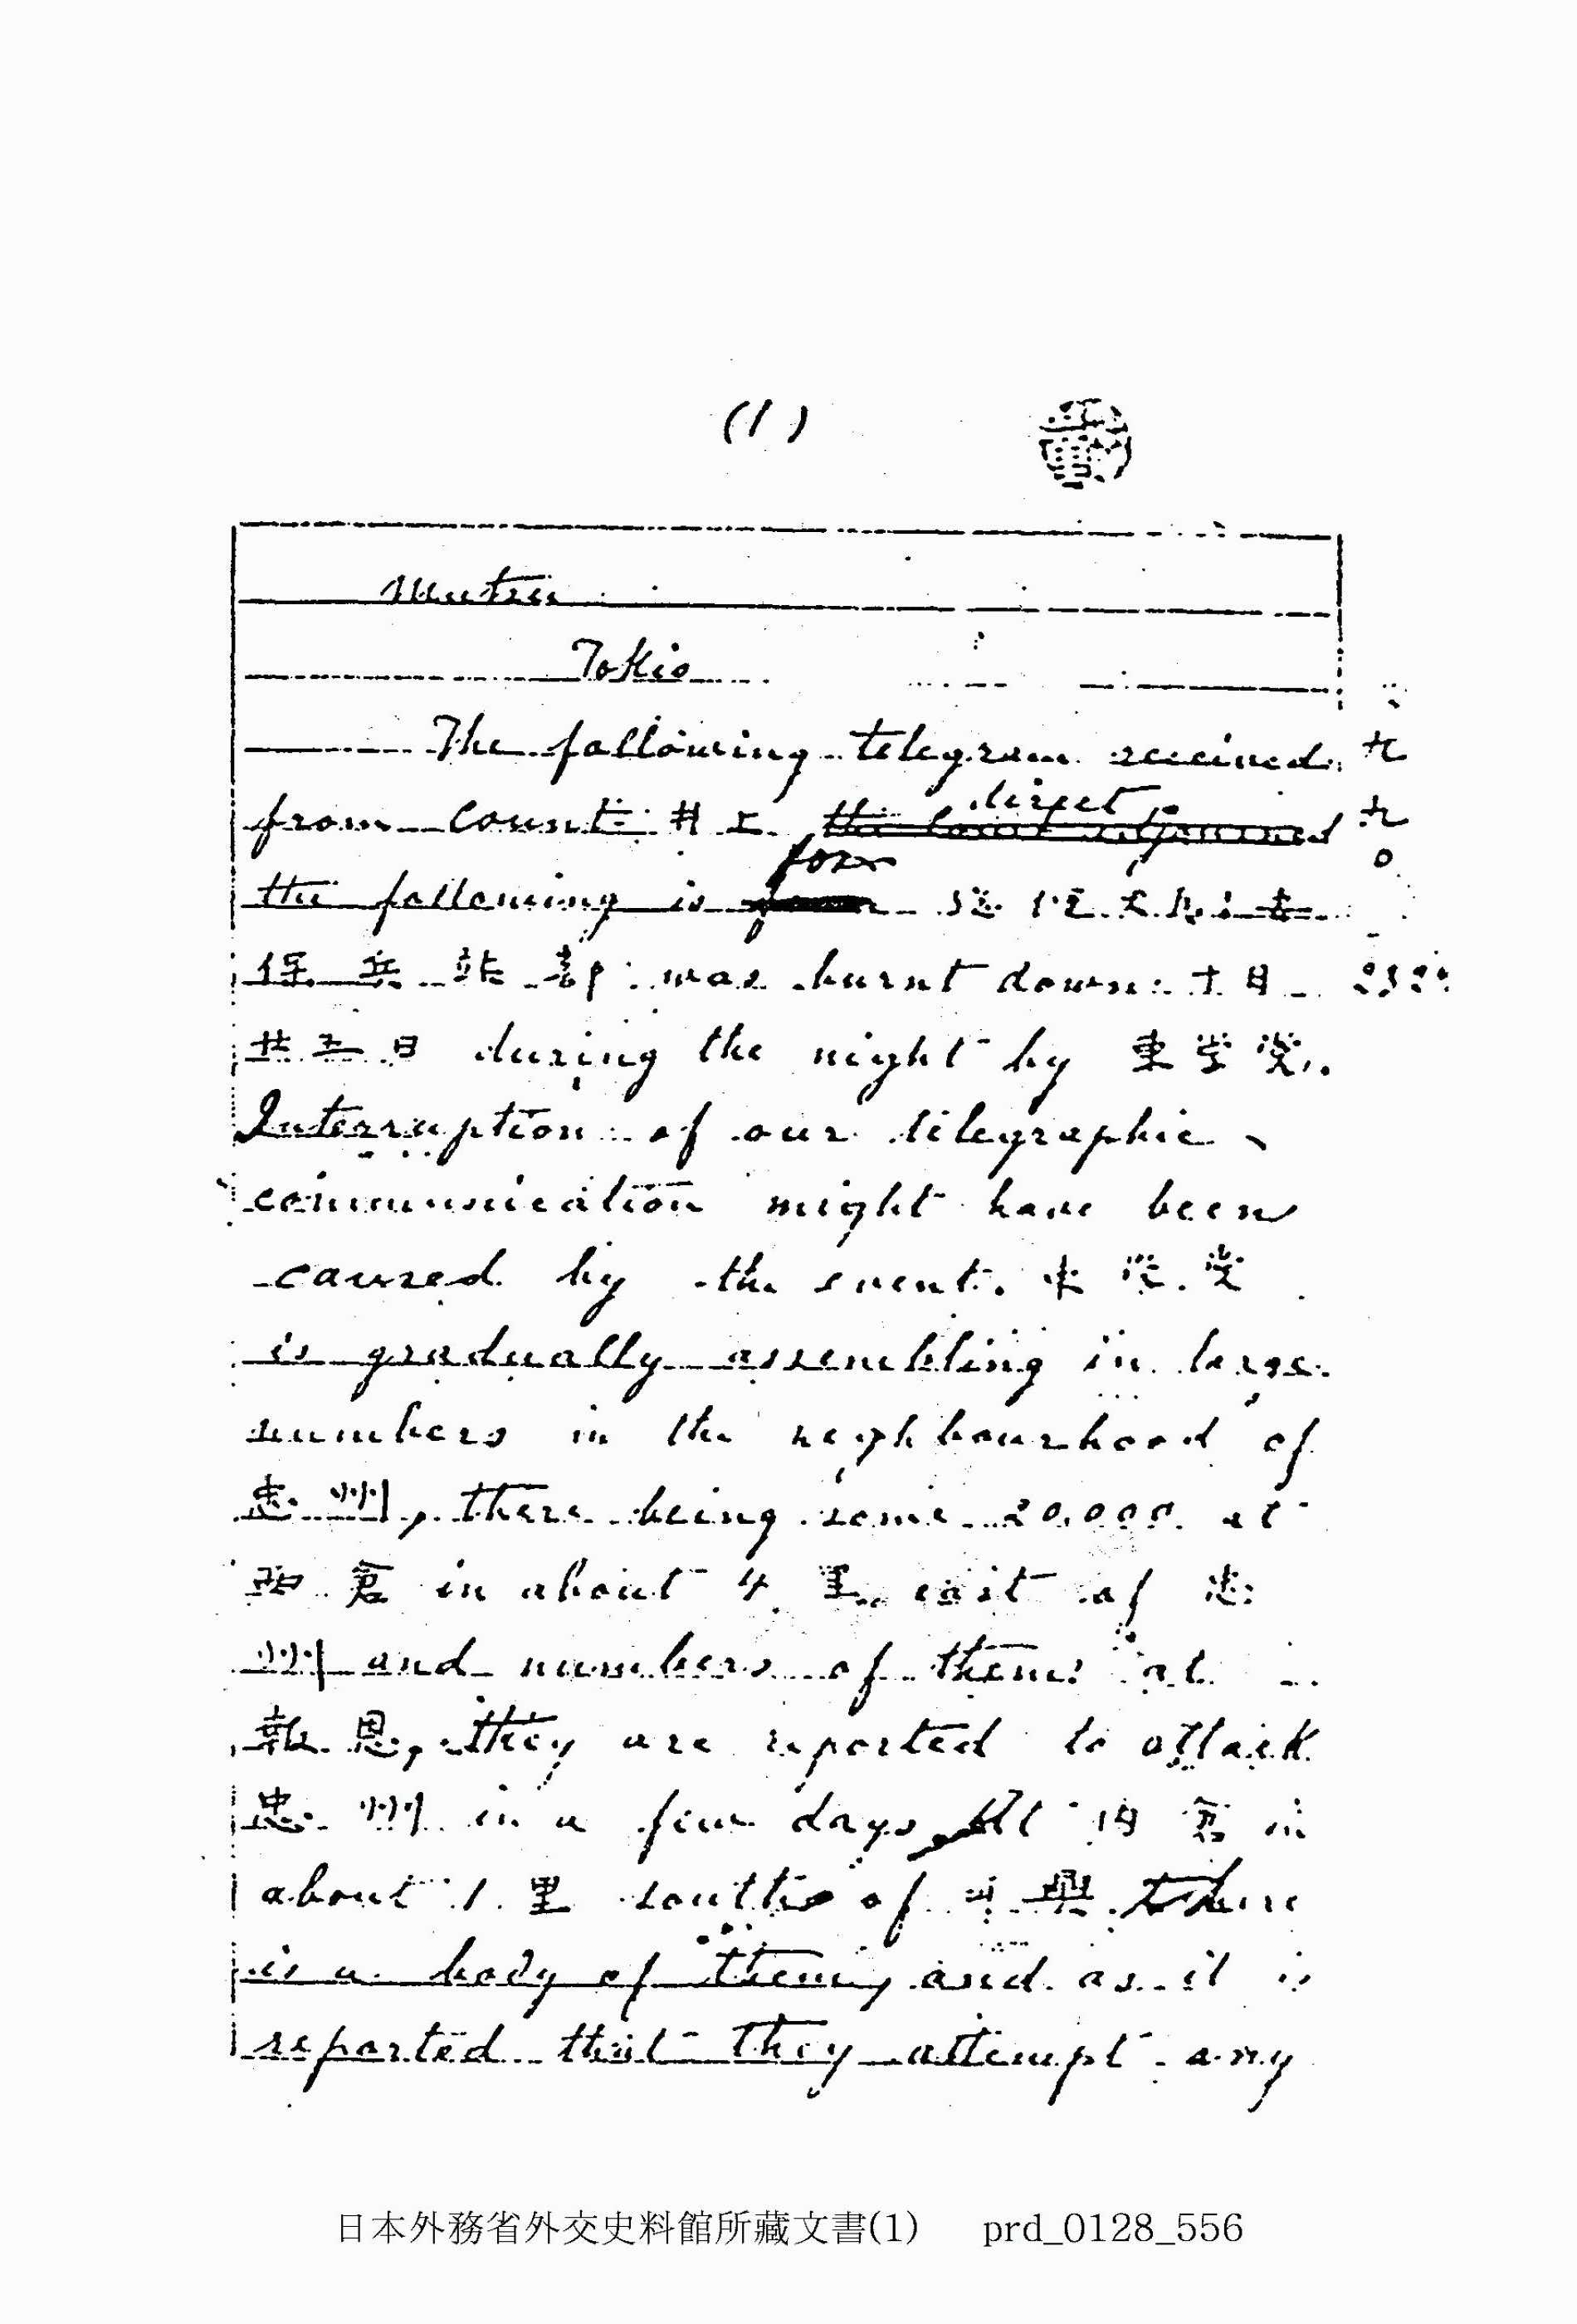 (1)
Mutsu
Tokio
The following telegram received
from Count 井上 direct
the following is from
保兵站部 was burnt down 十月
廿五日 during the night by 東学党.
Interruption of our telegraphic
communication might have been
caused by the event. 東学党
is gradually assembling in large
numbers in the neighbourhood of
忠州, there being some 20,000 at
倉 in about 4 里 east of 忠
州 and numbers of them at
報恩, they are reported to attack
忠州 in a few days. At 内倉 in
about 1 里 south of 可興 there
is a body of them, and as it is
reported that they attempt any
日本外務省外交史料館所藏文書(1) prd_0128_556